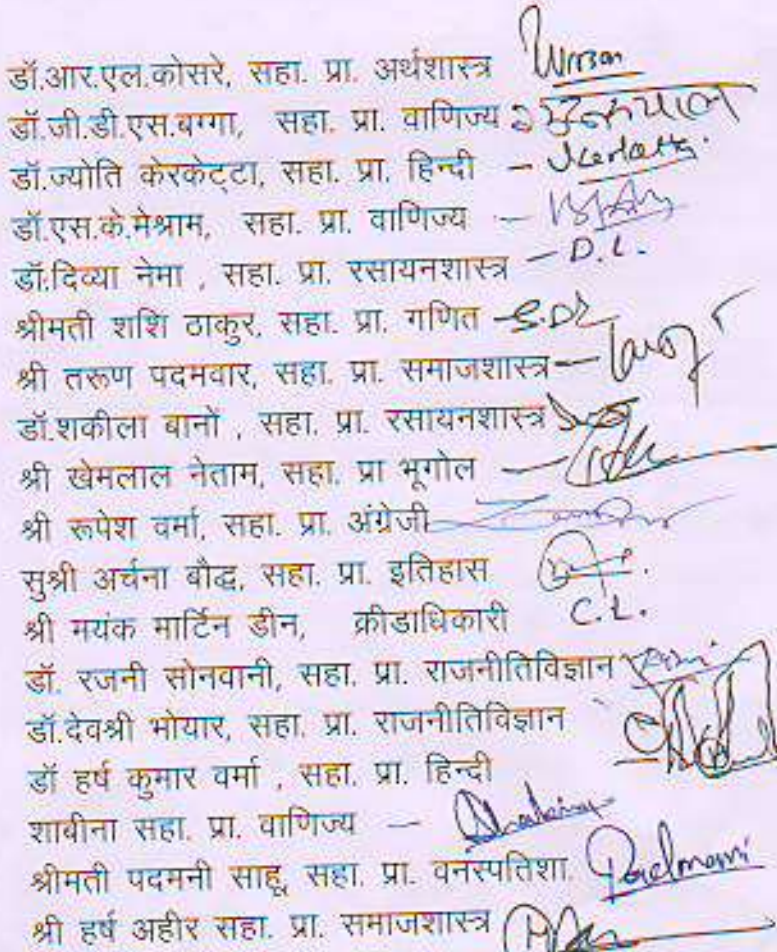 डॉ.आर.एल.कोसरे, सहा. प्रा. अर्थशास्त्र
डॉ.जी.डी.एस.बग्गा, सहा. प्रा. वाणिज्य
डॉ.ज्योति केरकेट्टा, सहा. प्रा. हिन्दी –
डॉ.एस.के.मेश्राम, सहा. प्रा. वाणिज्य –
डॉ.दिव्या नेमा , सहा. प्रा. रसायनशास्त्र – D.L.
श्रीमती शशि ठाकुर, सहा. प्रा. गणित
श्री तरूण पदमवार, सहा. प्रा. समाजशास्त्र –
डॉ.शकीला बानो , सहा. प्रा. रसायनशास्त्र
श्री खेमलाल नेताम, सहा. प्रा भूगोल –
श्री रूपेश वर्मा, सहा. प्रा. अंग्रेजी
सुश्री अर्चना बौद्ध, सहा. प्रा. इतिहास
श्री मयंक मार्टिन डीन, क्रीडाधिकारी C.L.
डॉ. रजनी सोनवानी, सहा. प्रा. राजनीतिविज्ञान
डॉ.देवश्री भोयार, सहा. प्रा. राजनीतिविज्ञान
डॉ हर्ष कुमार वर्मा , सहा. प्रा. हिन्दी
शाबीना सहा. प्रा. वाणिज्य –
श्रीमती पदमनी साहू, सहा. प्रा. वनस्पतिशा. Padmani
श्री हर्ष अहीर सहा. प्रा. समाजशास्त्र